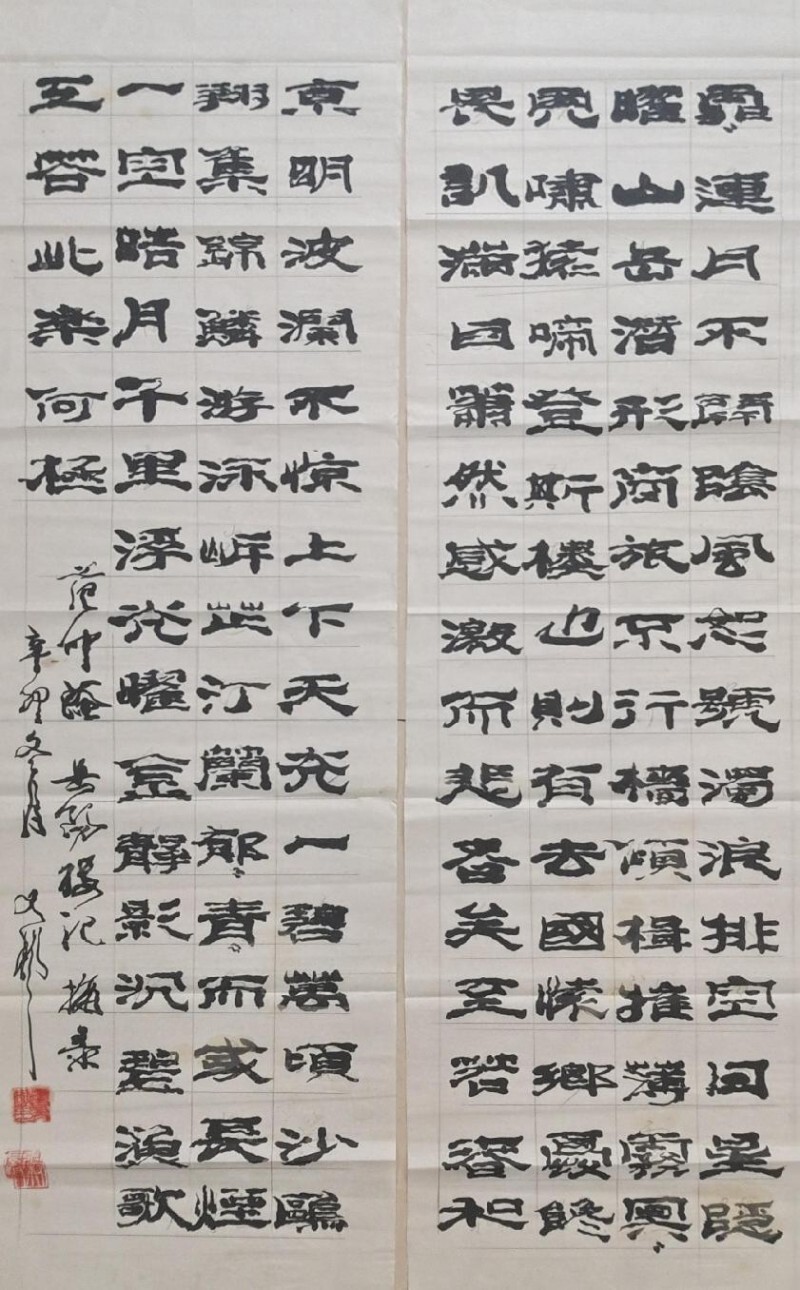 霏々連月不開陰風怒號濁浪排空日星隱
曜山岳潛形商旅不行檣傾楫摧薄霧冥々
虎嘯猿啼登斯樓也則有去國懷鄉憂讒
畏讥滿目蕭然感激而悲者矣至若春和
景明波瀾不惊上下天光一碧萬頃沙鷗
翔集錦鱗游泳岸芷汀蘭郁々青々而或長煙
一空皓月千里浮光曜金靜影沉碧漁歌
互荅此樂何極
范仲淹 岳陽樓記 摘录
辛卯冬月